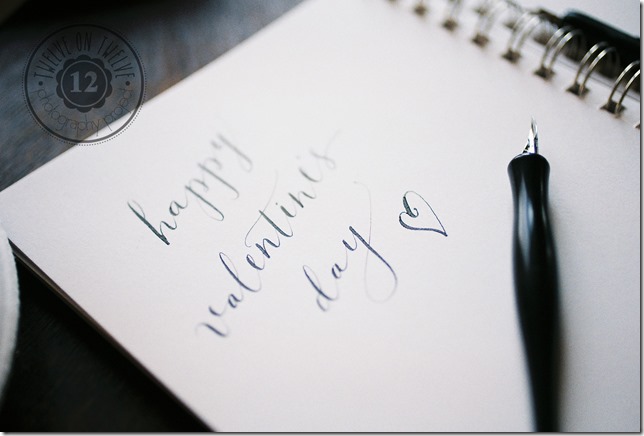 TWELVE ON TWELVE
12
photography project
happy
valentine's
day